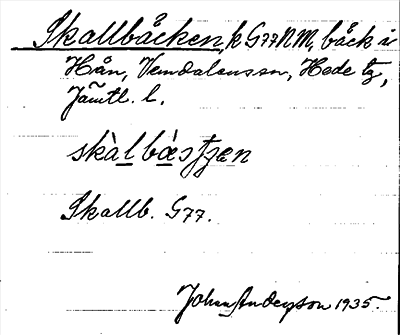 Skallbäcken, k G77 NM, bäck i
Hån, Vemdalens sn, Hede tg,
Jämtl. l.
skàl bæ̀stʃen
Skallb. G77.
Johan Anderson 1935.